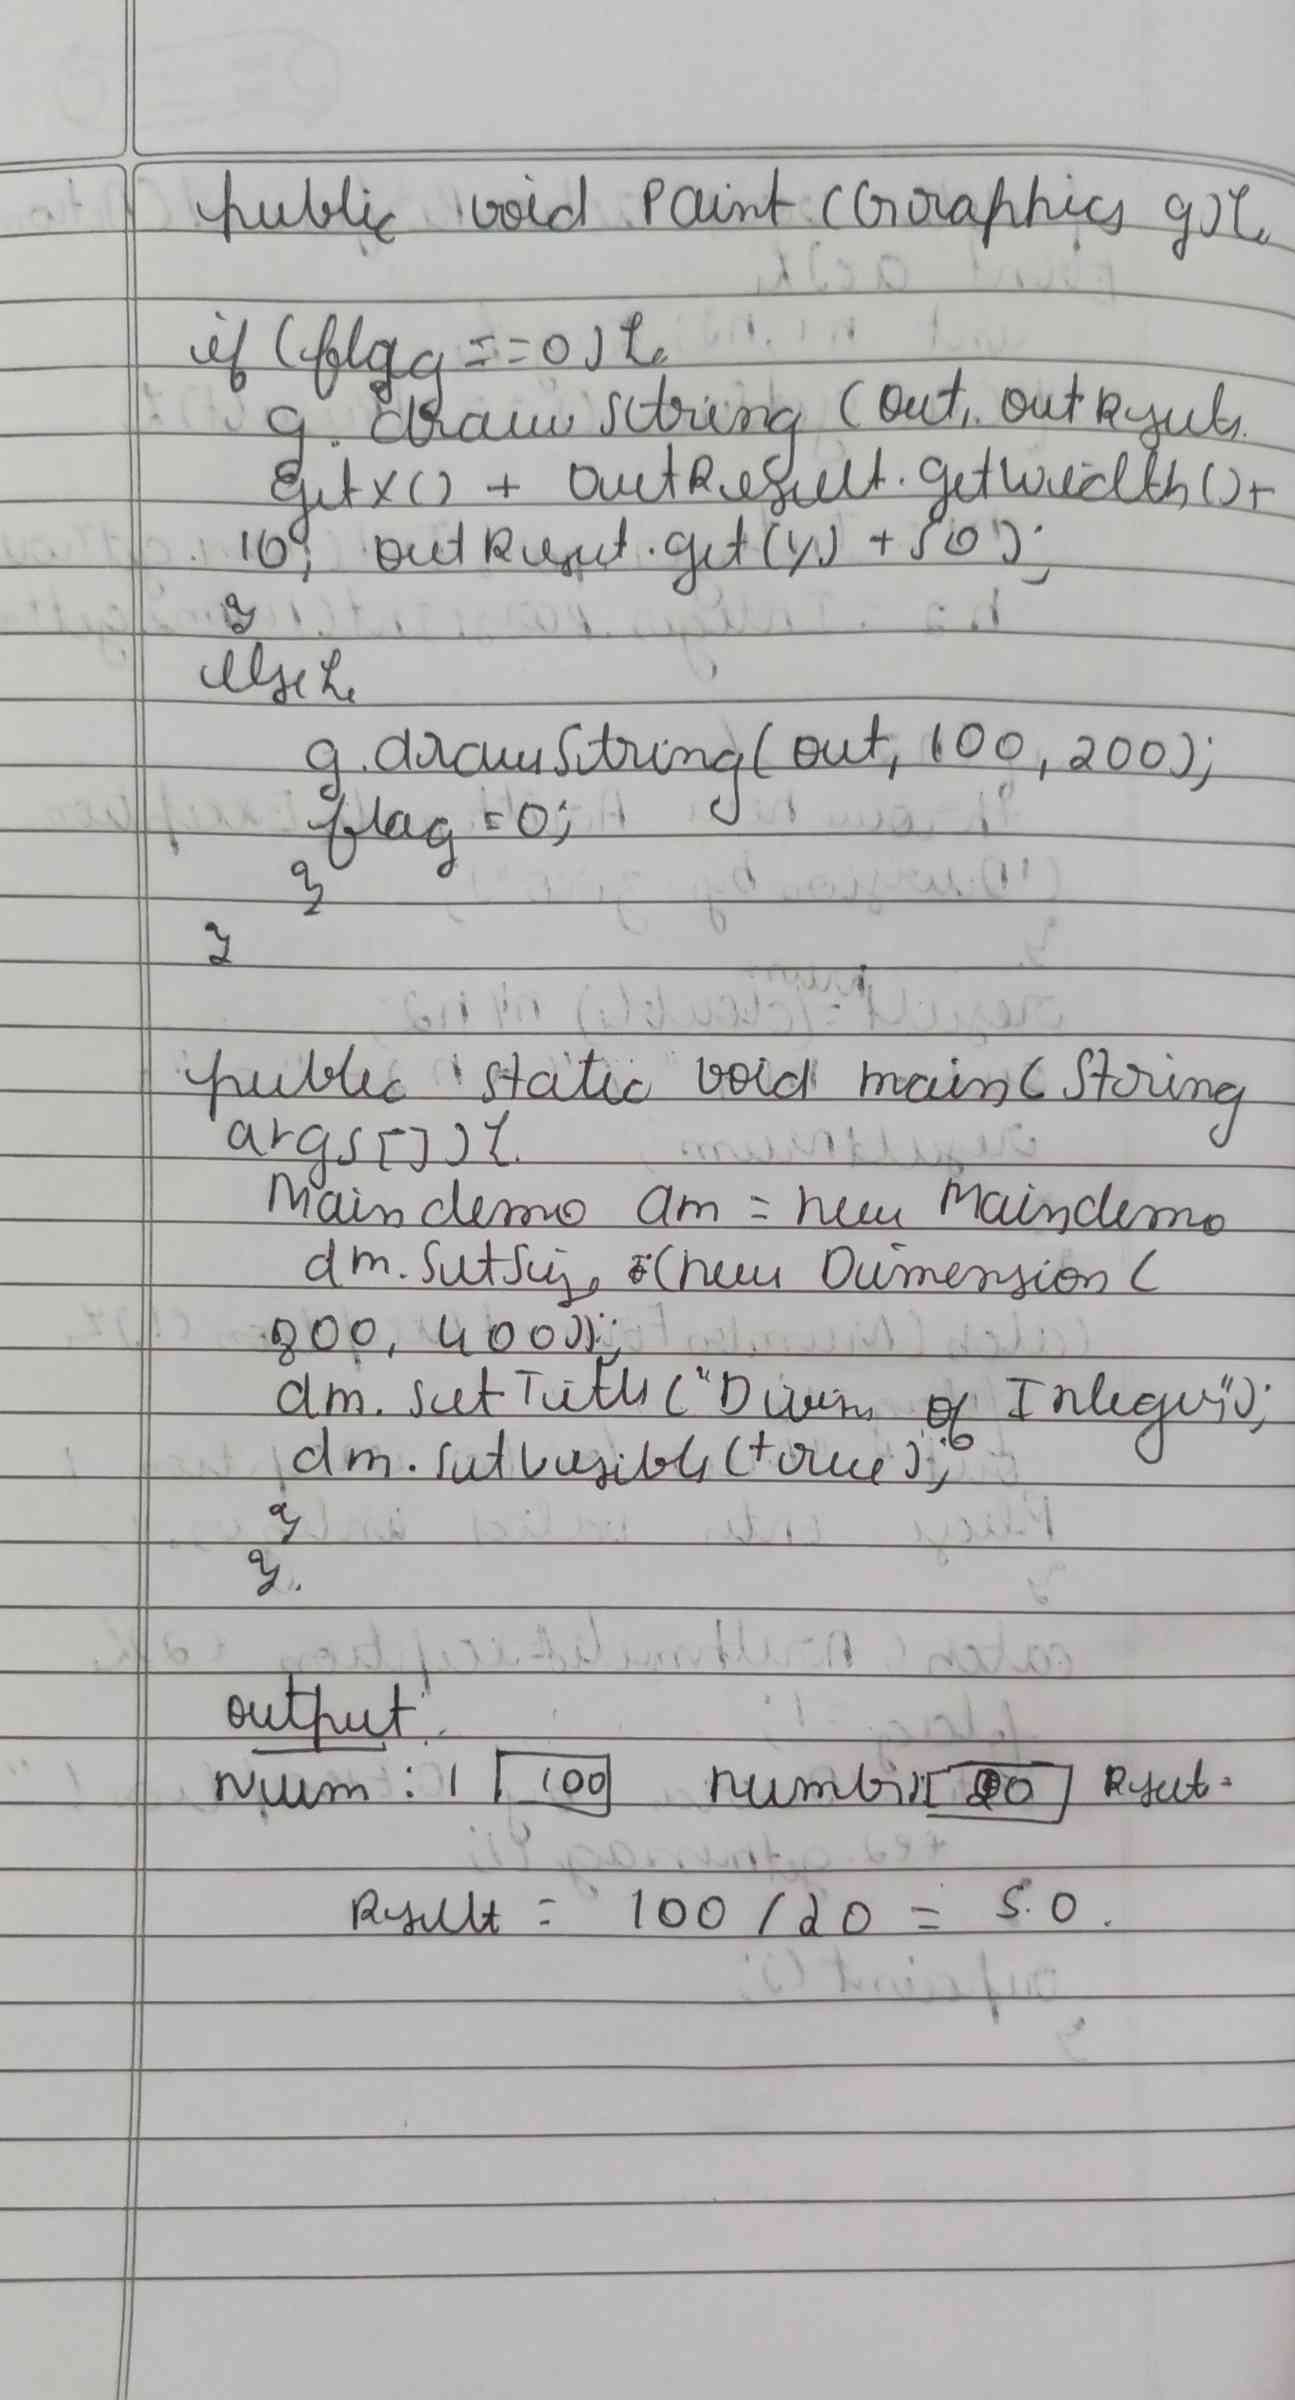 public void Paint (Graphics g){
if (flag ==0){
g. draw String (out, outResult.
getX() + outResult.getwidth()+
10, outResult.get(y) + 50);
}
else{
g.drawString(out, 100, 200);
flag =0;
}
}
public static void main(String
args[]){
Maindemo dm = new Maindemo
dm.setSize (new Dimension (
800, 400));
dm. set Title ("Divisn of Integer");
dm. setvisible (true);
}
}.
output:
Num : 1 100 number 20 Result-
Result = 100 / 20 = 5.0.